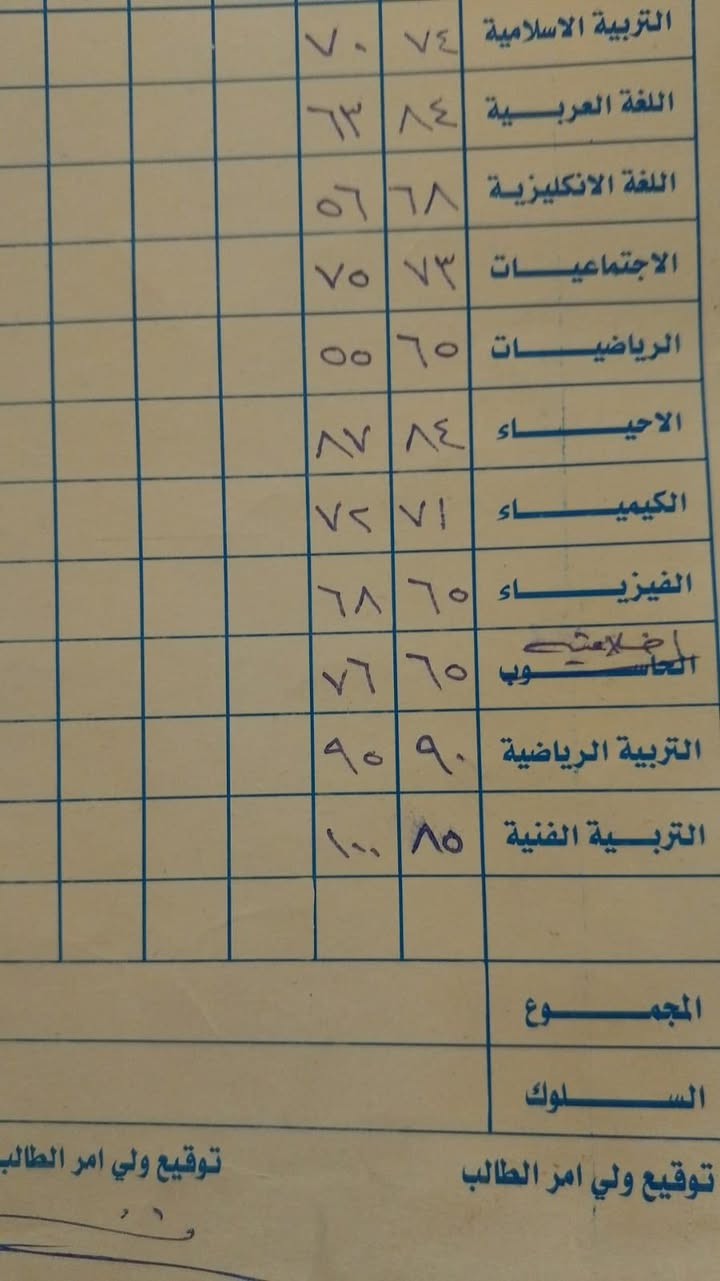 التربية الاسلامية ٧٤ ٧٠
اللغة العربية ٨٤ ٦٣
اللغة الانكليزية ٦٨ ٥٦
الاجتماعيات ٧٣ ٧٥
الرياضيات ٦٥ ٥٥
الاحياء ٨٤ ٨٧
الكيمياء ٧١ ٧٢
الفيزياء ٦٥ ٦٨
اخلاقية
الحاسوب ٦٥ ٧٦
التربية الرياضية ٩٠ ٩٥
التربية الفنية ٨٥ ١٠٠
المجموع
السلوك
توقيع ولي امر الطالب توقيع ولي امر الطالب